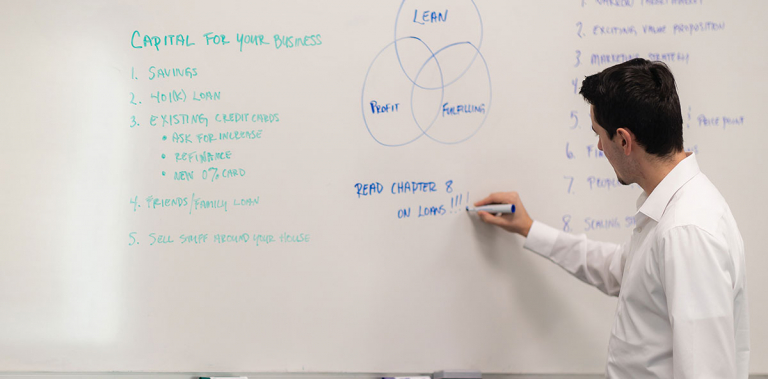 CAPITAL FOR YOUR BUSINESS
1. SAVINGS
2. 401(K) LOAN
3. EXISTING CREDIT CARDS
• ASK FOR INCREASE
• REFINANCE
• NEW 0% CARD
4. FRIENDS/FAMILY LOAN
5. SELL STUFF AROUND YOUR HOUSE
LEAN
PROFIT
FULFILLING
READ CHAPTER 8
ON LOANS!!!
1.
2. EXCITING VALUE PROPOSITION
3. MARKETING STRATEGY
4.
5.
6.
7.
8. SCALING